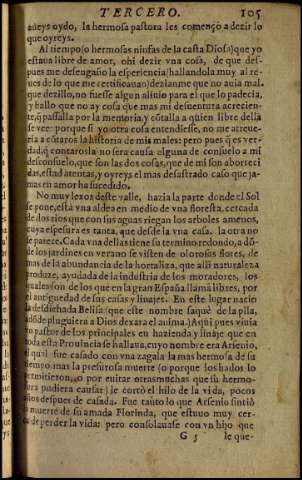 TERCERO. 105
aueys oydo, la hermosa pastora les començò a dezir lo
que oyreys.
Al tiempo (o hermosas ninfas de la casta Diosa) que yo
estaua libre de amor, ohi dezir vna cosa, de que des-
pues me desengaño la esperiencia, hallandola muy al re-
ues de lo que me certificauan: dezianme que no auia mal,
que dezillo, no fuesse algun aliuio para el que lo padecia,
y hallo que no ay cosa que mas mi desuentura acrecien-
te, q̃ passalla por la memoria, y cõtalla a quien libre della
se vee: porque si yo otra cosa entendiesse, no me atreue-
ria a cõtaros la historia de mis males: pero pues q̃ es ver-
dad, q̃ contarosla no sera causa alguna de consuelo a mi
desconsuelo, que son las dos cosas, que de mi son aborreci
das, estad atentas, y oyreys el mas desastrado caso que ja-
mas en amor ha sucedido.
No muy lexos deste valle, hazia la parte donde el Sol
se pone, està vna aldea en medio de vna floresta, cercada
de dos rios que con sus aguas riegan los arboles amenos,
cuya espesura es tanta, que desde la vna casa, la otra no
se parece. Cada vna dellas tiene su termino redondo, a dõ-
de los jardines en verano se visten de olorosos flores, de
mas de la abundancia de la hortaliza, que alli naturaleza
produze, ayudada de la industria de los moradores, los
quales son de los que en la gran España llamã libres, por
el antiguedad de sus casas y linajes. En este lugar nacio
la desdichada Belisa (que este nombre saquè de la pila,
adõde pluguiera a Dios dexara el anima.) Aqui pues viuia
vn pastor de los principales en hazienda y linaje que en
toda esta Prouincia se hallaua, cuyo nombre era Arsenio,
el qual fue casado con vna zagala la mas hermosa de su
tiempo: mas la presurosa muerte (o porque los hados lo
permitieron, o por euitar otras muchas que su hermo-
sura pudiera causar) le cortò el hilo de la vida, pocos
años despues de casada. Fue tanto lo que Arsenio sintiò
la muerte de su amada Florinda, que estuuo muy cer-
ca de perder la vida: pero consolauase con vn hijo que
G 5 le que-